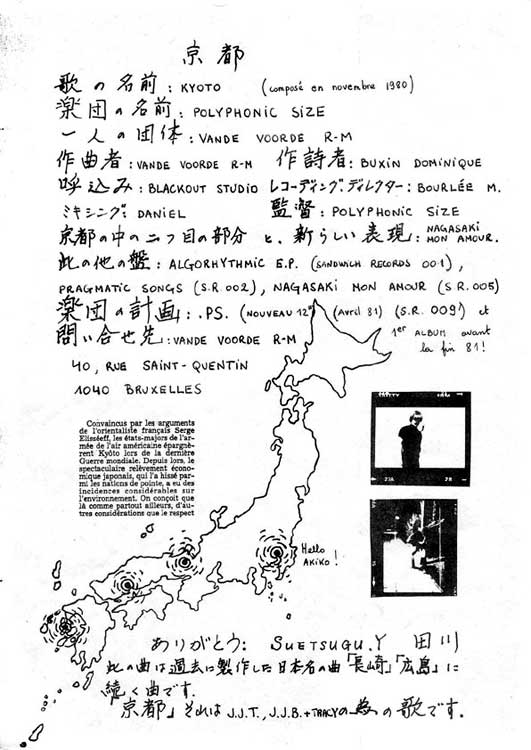 京都
歌の名前: KYOTO (composé en novembre 1980)
楽団の名前: POLYPHONIC SIZE
一人の団体: VANDE VOORDE R-M
作曲者: VANDE VOORDE R-M 作詩者: BUXIN DOMINIQUE
呼込み: BLACKOUT STUDIO レコーディング.ディレクター: BOURLÉE M.
ミキシング: DANIEL 監督: POLYPHONIC SIZE
京都の中の二つ目の部分 と、新らしい表現: NAGASAKI MON AMOUR.
此の他の盤: ALGORHYTHMIC E.P. (SANDWICH RECORDS 001),
PRAGMATIC SONGS (S.R. 002), NAGASAKI MON AMOUR (S.R. 005)
楽団の計画: .PS. (NOUVEAU 12" (Avril 81) (S.R. 009!) et
1er ALBUM avant
la fin 81!
問い合せ先: VANDE VOORDE R-M
40, RUE SAINT-QUENTIN
1040 BRUXELLES
Convaincus par les arguments
de l'orientaliste français Serge
Elisséeff, les états-majors de l'ar-
mée de l'air américaine épargnè-
rent Kyôto lors de la dernière
Guerre mondiale. Depuis lors, le
spectaculaire relèvement écono-
mique japonais, qui l'a hissé par-
mi les nations de pointe, a eu des
incidences considérables sur
l'environnement. On conçoit que
là comme partout ailleurs, d'au-
tres considérations que le respect
23A
Hello
AKIKO!
ありがとう: SUETSUGU.Y 田川
此の曲は過去に製作した日本名の曲「長崎」「広島」に
続く曲です.
京都」それは J.J.T., J.J.B. + TRACYの為の歌です.